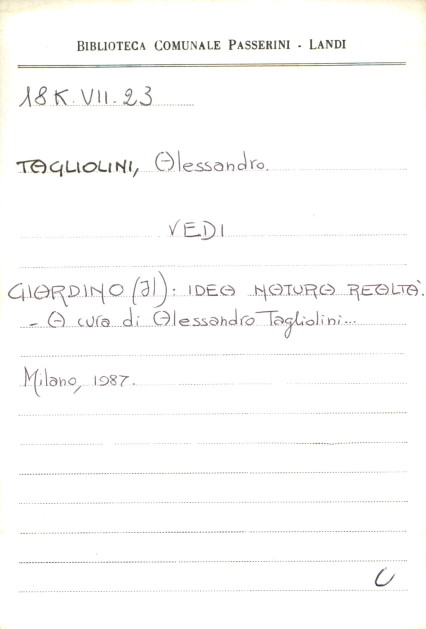 BIBLIOTECA COMUNALE PASSERINI - LANDI
18K.VII.23
TAGLIOLINI, Alessandro.
VEDI
GIARDINO (Il): IDEA NATURA REALTÀ.
- A cura di Alessandro Tagliolini...
Milano, 1987.
C